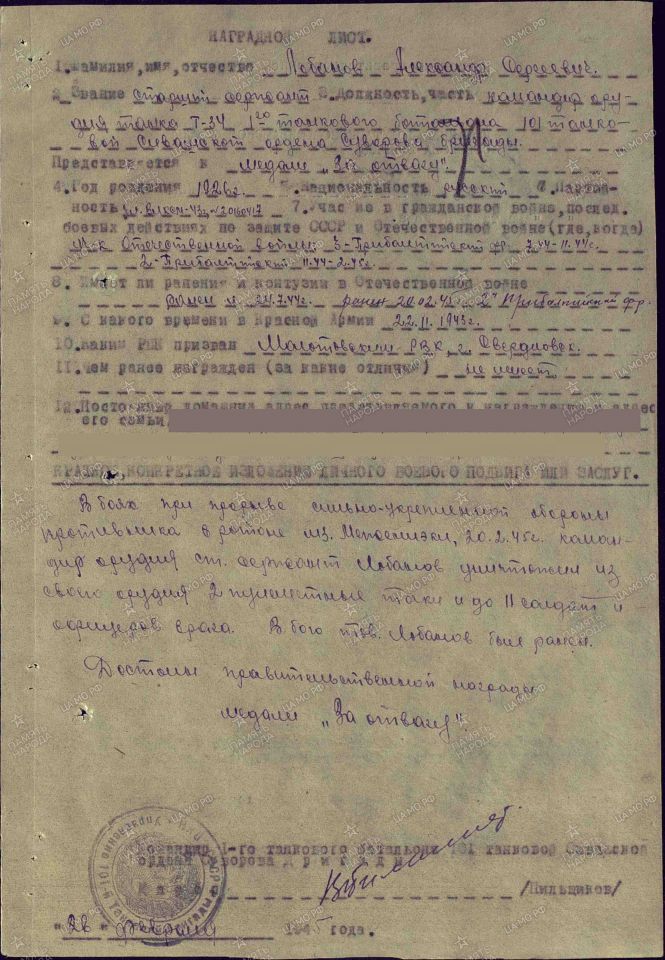 НАГРАДНО ЛИСТ.
1. Фамилия, имя, отчество Лобанов Александр Сергеевич.
2. Звание старший сержант 3. Должность, часть командир ору-
дия танка Т-34 1го танкового батальона 101 танко-
вой Сивашской ордена Суворова бригады.
Представляется к медали „За отвагу"
4. Год рождения 1926г. 5. Национальность русский 6. Партий-
ность чл. ВЛКСМ-43г.
7. Участие в гражданской войне, послед.
боевых действиях по защите СССР и Отечественной войне (где, когда)
Уч-к Отечественной войны: 3-Прибалтийский фр. 7.44-11.44г.
2-Прибалтийский 11.44-2.45г.
8. Имеет ли ранения и контузии в Отечественной войне
ранен 20.02.45г. 2й Прибалтийский фр.
9. С какого времени в Красной Армии 22.11.1943г.
10. Каким РВК призван Молотовским РВК, г. Свердловск.
11. Чем ранее награжден (за какие отличия) не имеет
12. Постоянный домашний адрес представляемого к награждению и адрес
его семьи
КРАТКОЕ, КОНКРЕТНОЕ ИЗЛОЖЕНИЕ ЛИЧНОГО БОЕВОГО ПОДВИГА ИЛИ ЗАСЛУГ.
В боях при прорыве сильно-укрепленной обороны
противника в районе мз. 20.2.45г. коман-
дир орудия ст. сержант Лобанов уничтожил из
своего орудия 2 пулеметные точки и до 11 солдат и
офицеров врага. В бою тов. Лобанов был ранен.
Достоин правительственной награды
медали „За отвагу".
Командир 1-го танкового батальона 101 танковой Сивашской
ордена Суворова Бригады
/Пильщиков/
"26" февраля 1945 года.